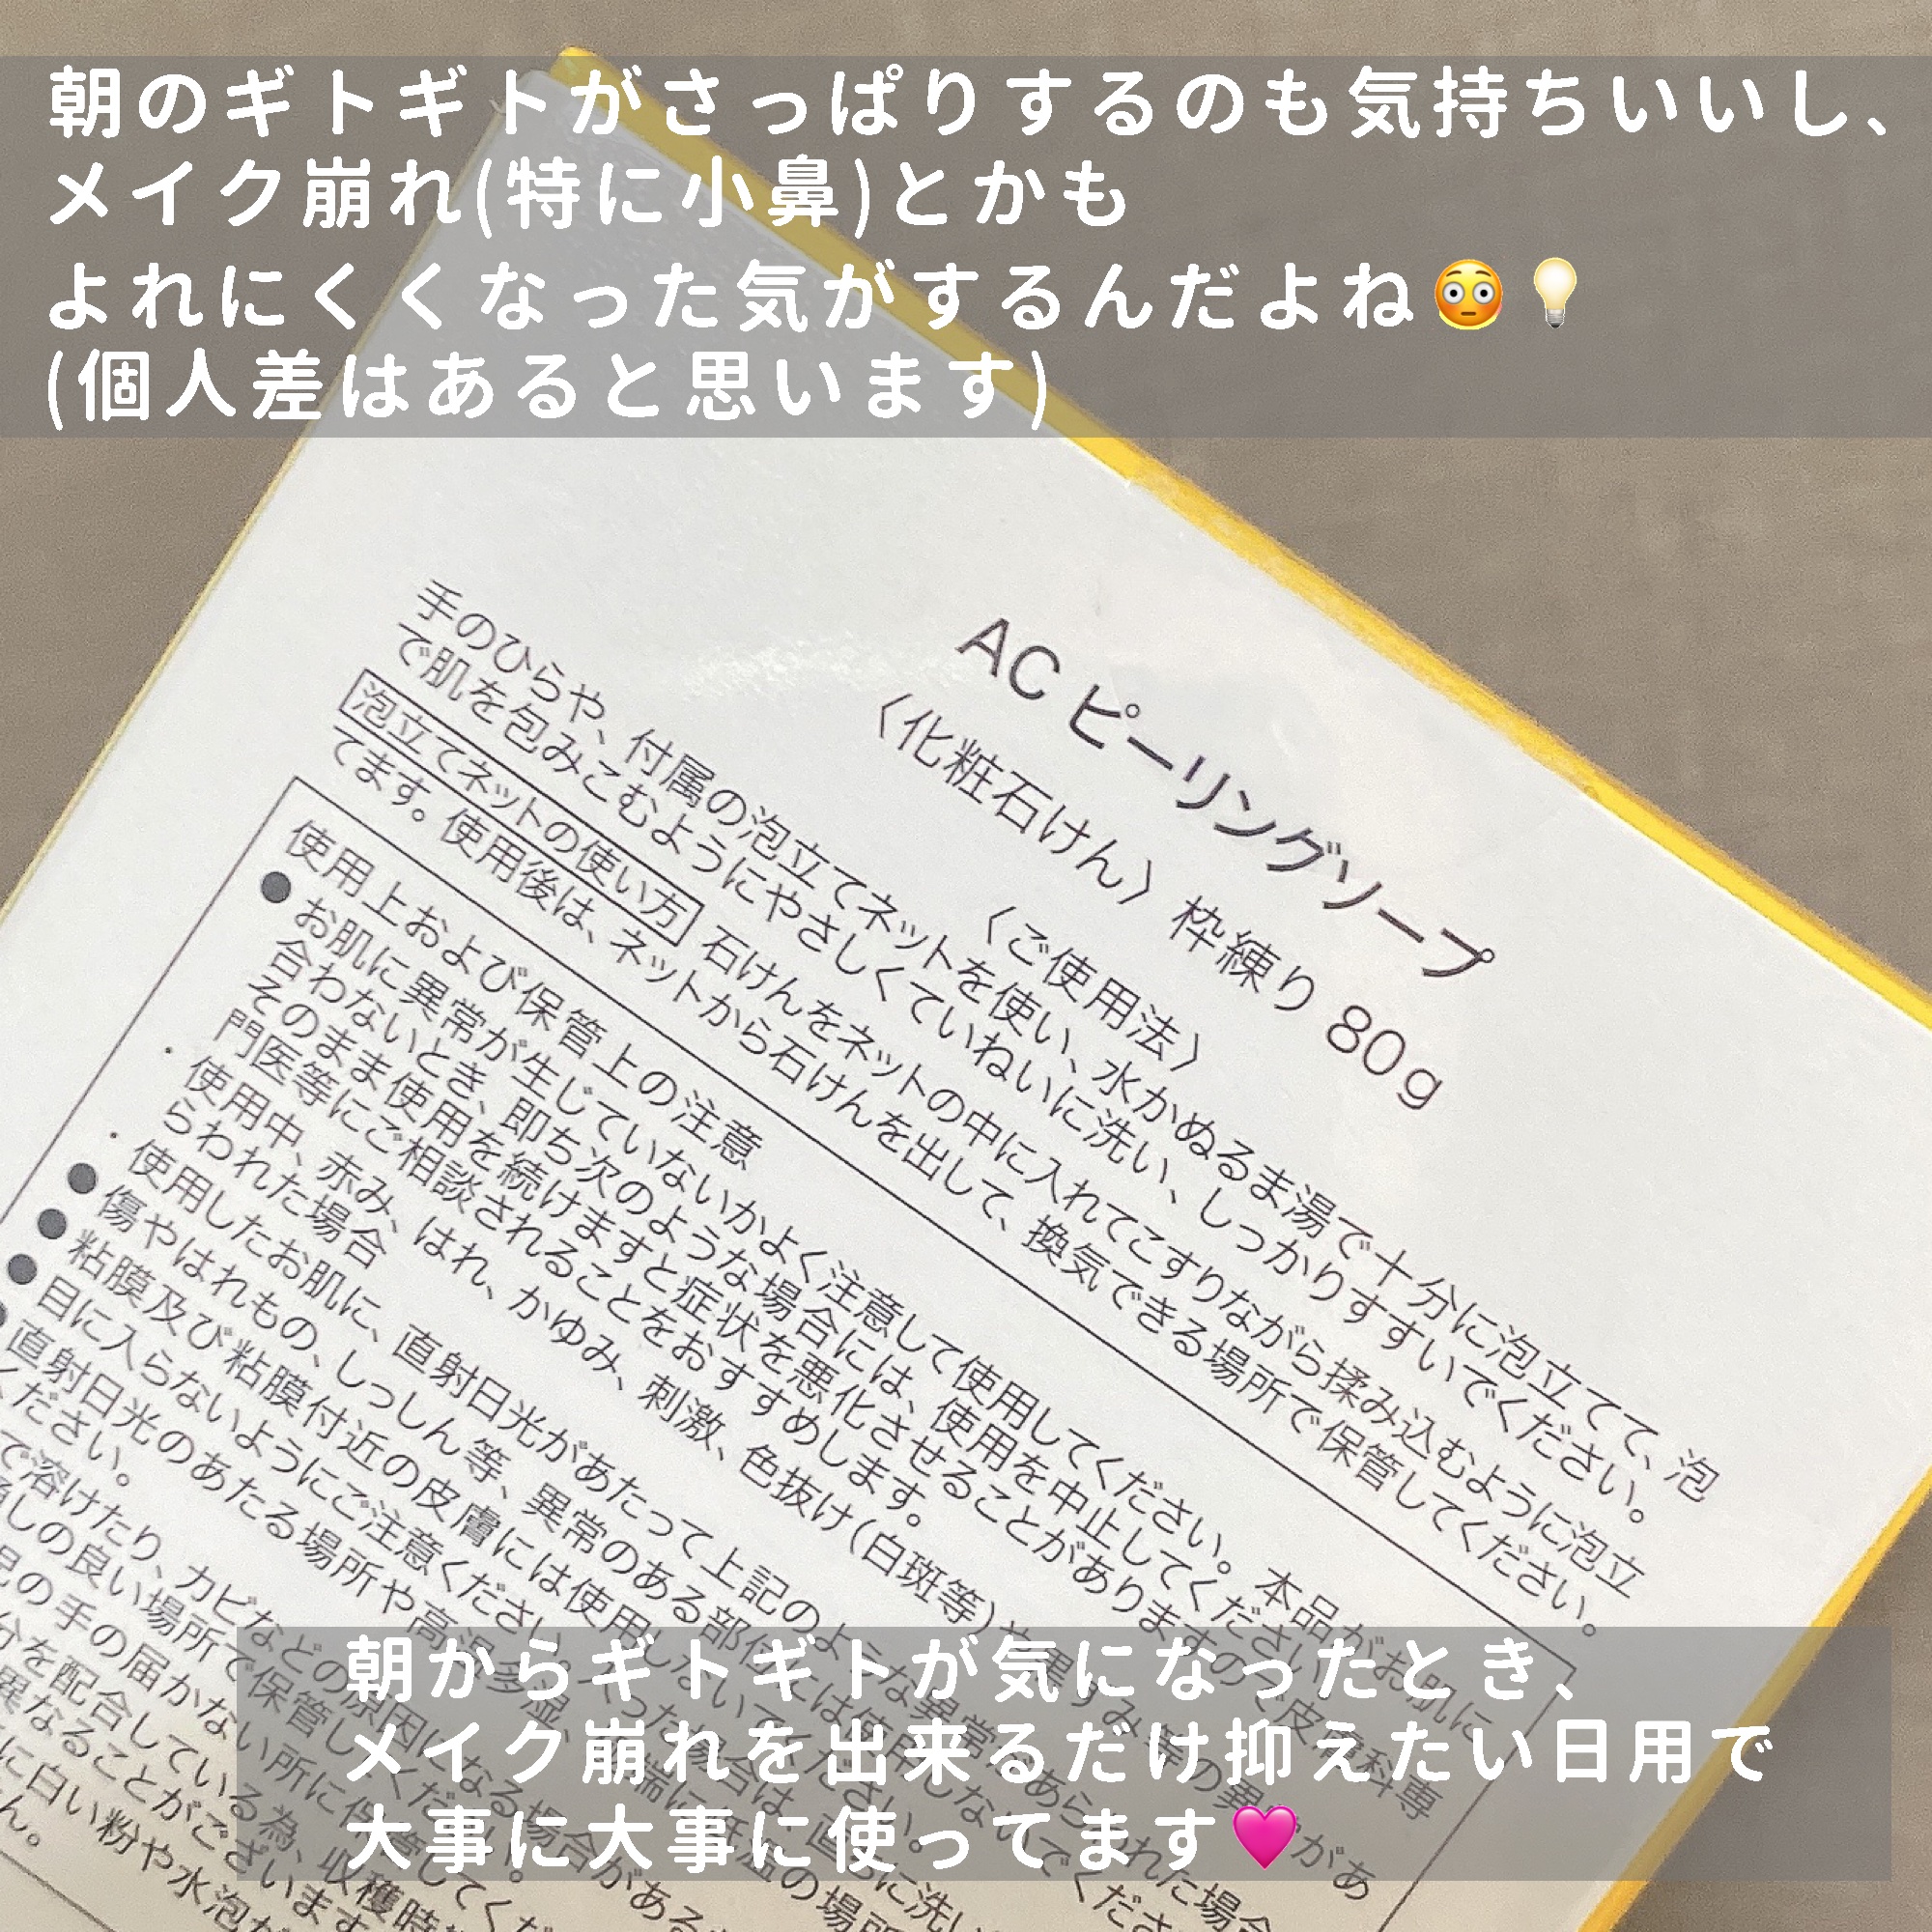 朝のギトギトがさっぱりするのも気持ちいいし、
メイク崩れ(特に小鼻)とかも
よれにくくなった気がするんだよね😳💡
(個人差はあると思います)
AC ピーリングソープ
〈化粧石けん〉枠練り 80g
〈ご使用法〉
手のひらや、付属の泡立てネットを使い、水かぬるま湯で十分に泡立てて、泡
で肌を包みこむようにやさしくていねいに洗い、しっかりすすいでください。
泡立てネットの使い方 石けんをネットの中に入れてこすりながら揉み込むように泡立
てます。使用後は、ネットから石けんを出して、換気できる場所で保管してください。
使用上および保管上の注意
●お肌に異常が生じていないかよく注意して使用してください。本品がお肌に
合わないとき、即ち次のような場合には、使用を中止してください。
そのまま使用を続けますと症状を悪化させることがありますので皮膚科専
門医等にご相談されることをおすすめします。
・使用中、赤み、はれ、かゆみ、刺激、色抜け(白斑等)や黒ずみ等の異常があ
らわれた場合
・使用したお肌に、直射日光があたって上記のような異常があらわれた場合
●傷やはれもの、しっしん等、異常のある部位には使用しないでください。
●粘膜及び粘膜付近の皮膚には使用しないでください。
●目に入らないようにご注意ください。入った場合は、直ちに洗い
●直射日光のあたる場所や高温多湿、極端に低温の場所
ください。
で溶けたり、カビなどの原因になる場合がある
通しの良い場所で保管してください。
の手の届かない所に保管してくだ
分を配合している為、収穫時
異なることがございます
に白い粉や水泡が
ん。
朝からギトギトが気になったとき、
メイク崩れを出来るだけ抑えたい日用で
大事に大事に使ってます💗